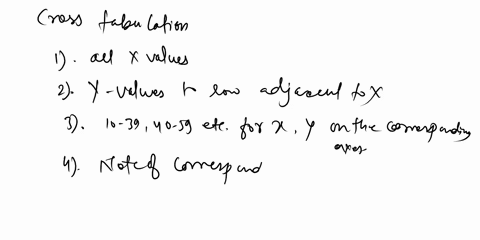 Cross tabulation
1). all X values
2). Y-values to row adjacent to X
3). 10-39, 40-59 etc. for X, Y on the corresponding
axes
4). Note of Correspond